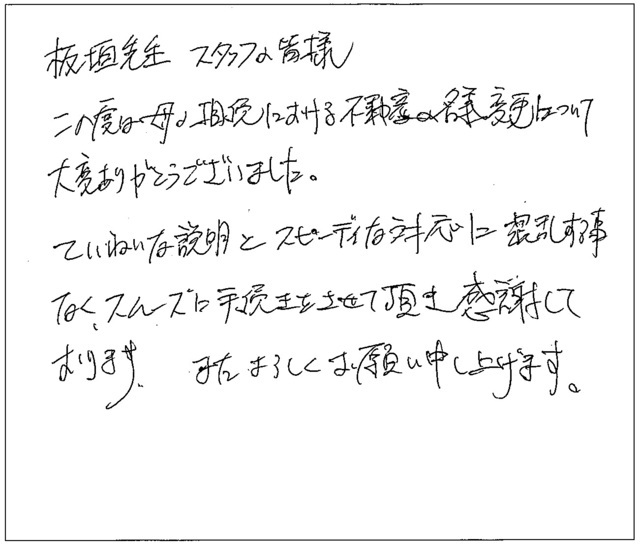 板垣先生 スタッフの皆様
この度は母の相続における不動産の名義変更について
大変ありがとうございました。
ていねいな説明とスピーディな対応に混乱する事
なく、スムーズに手続きをさせて頂き感謝して
おります。またよろしくお願い申し上げます。